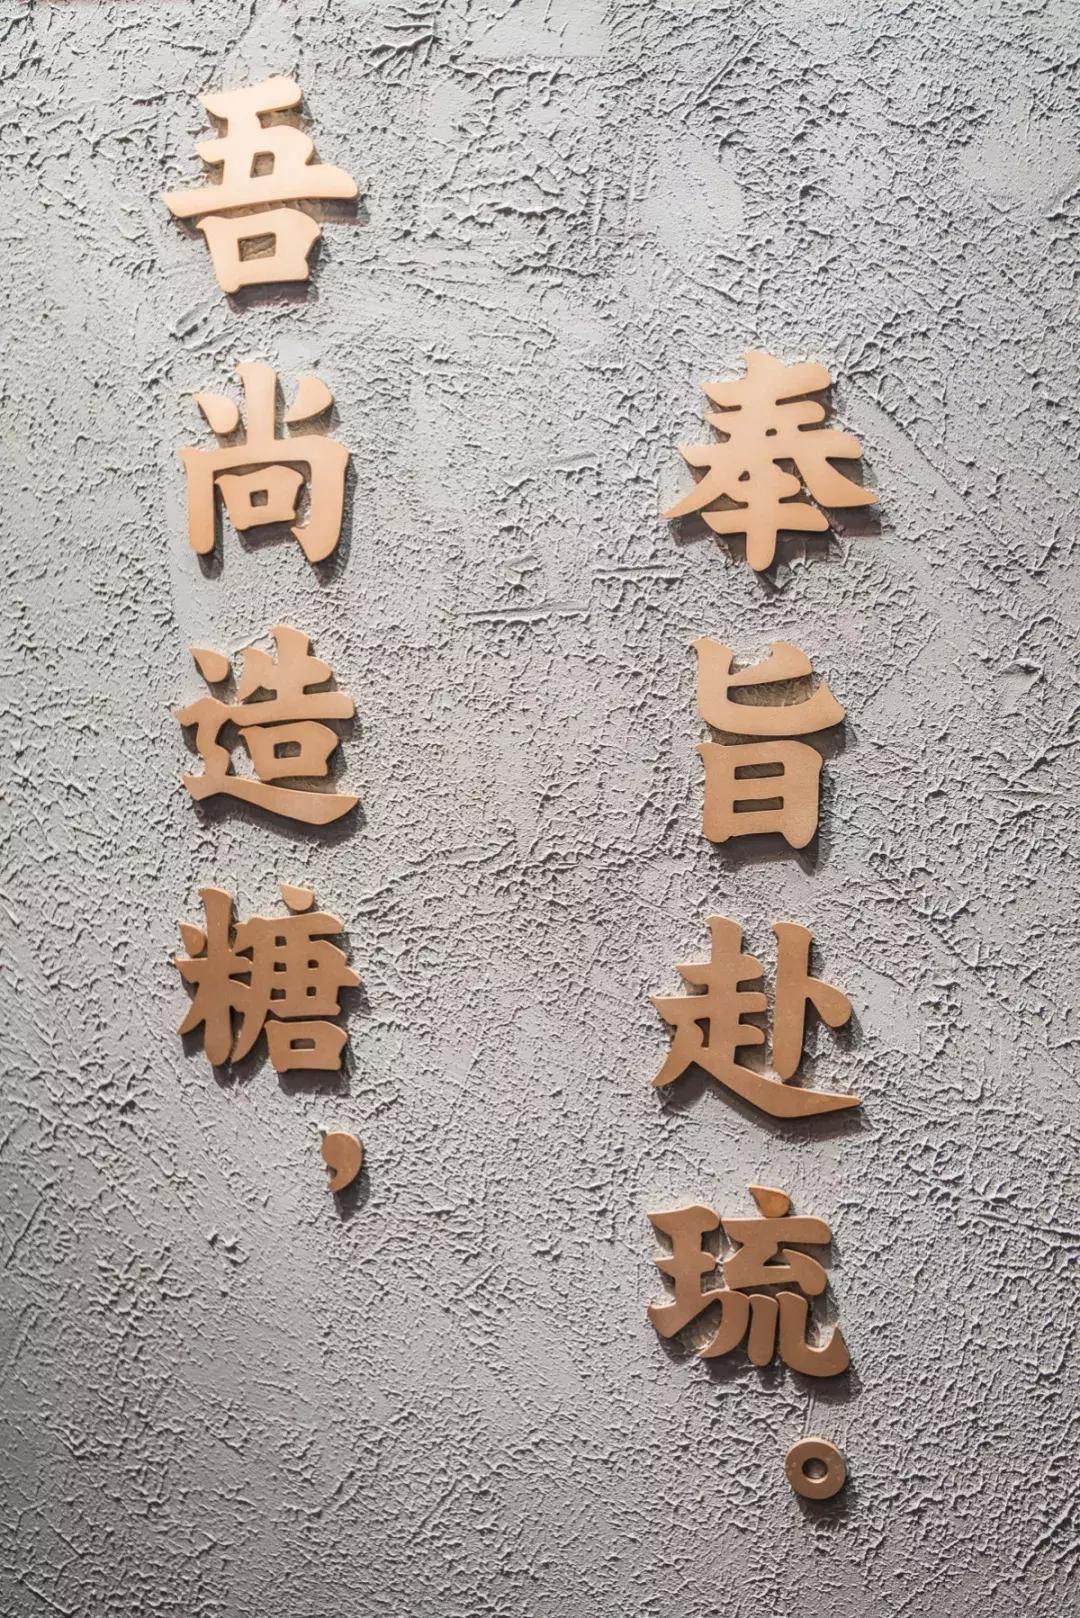 吾尚造糖，
奉旨赴琉。